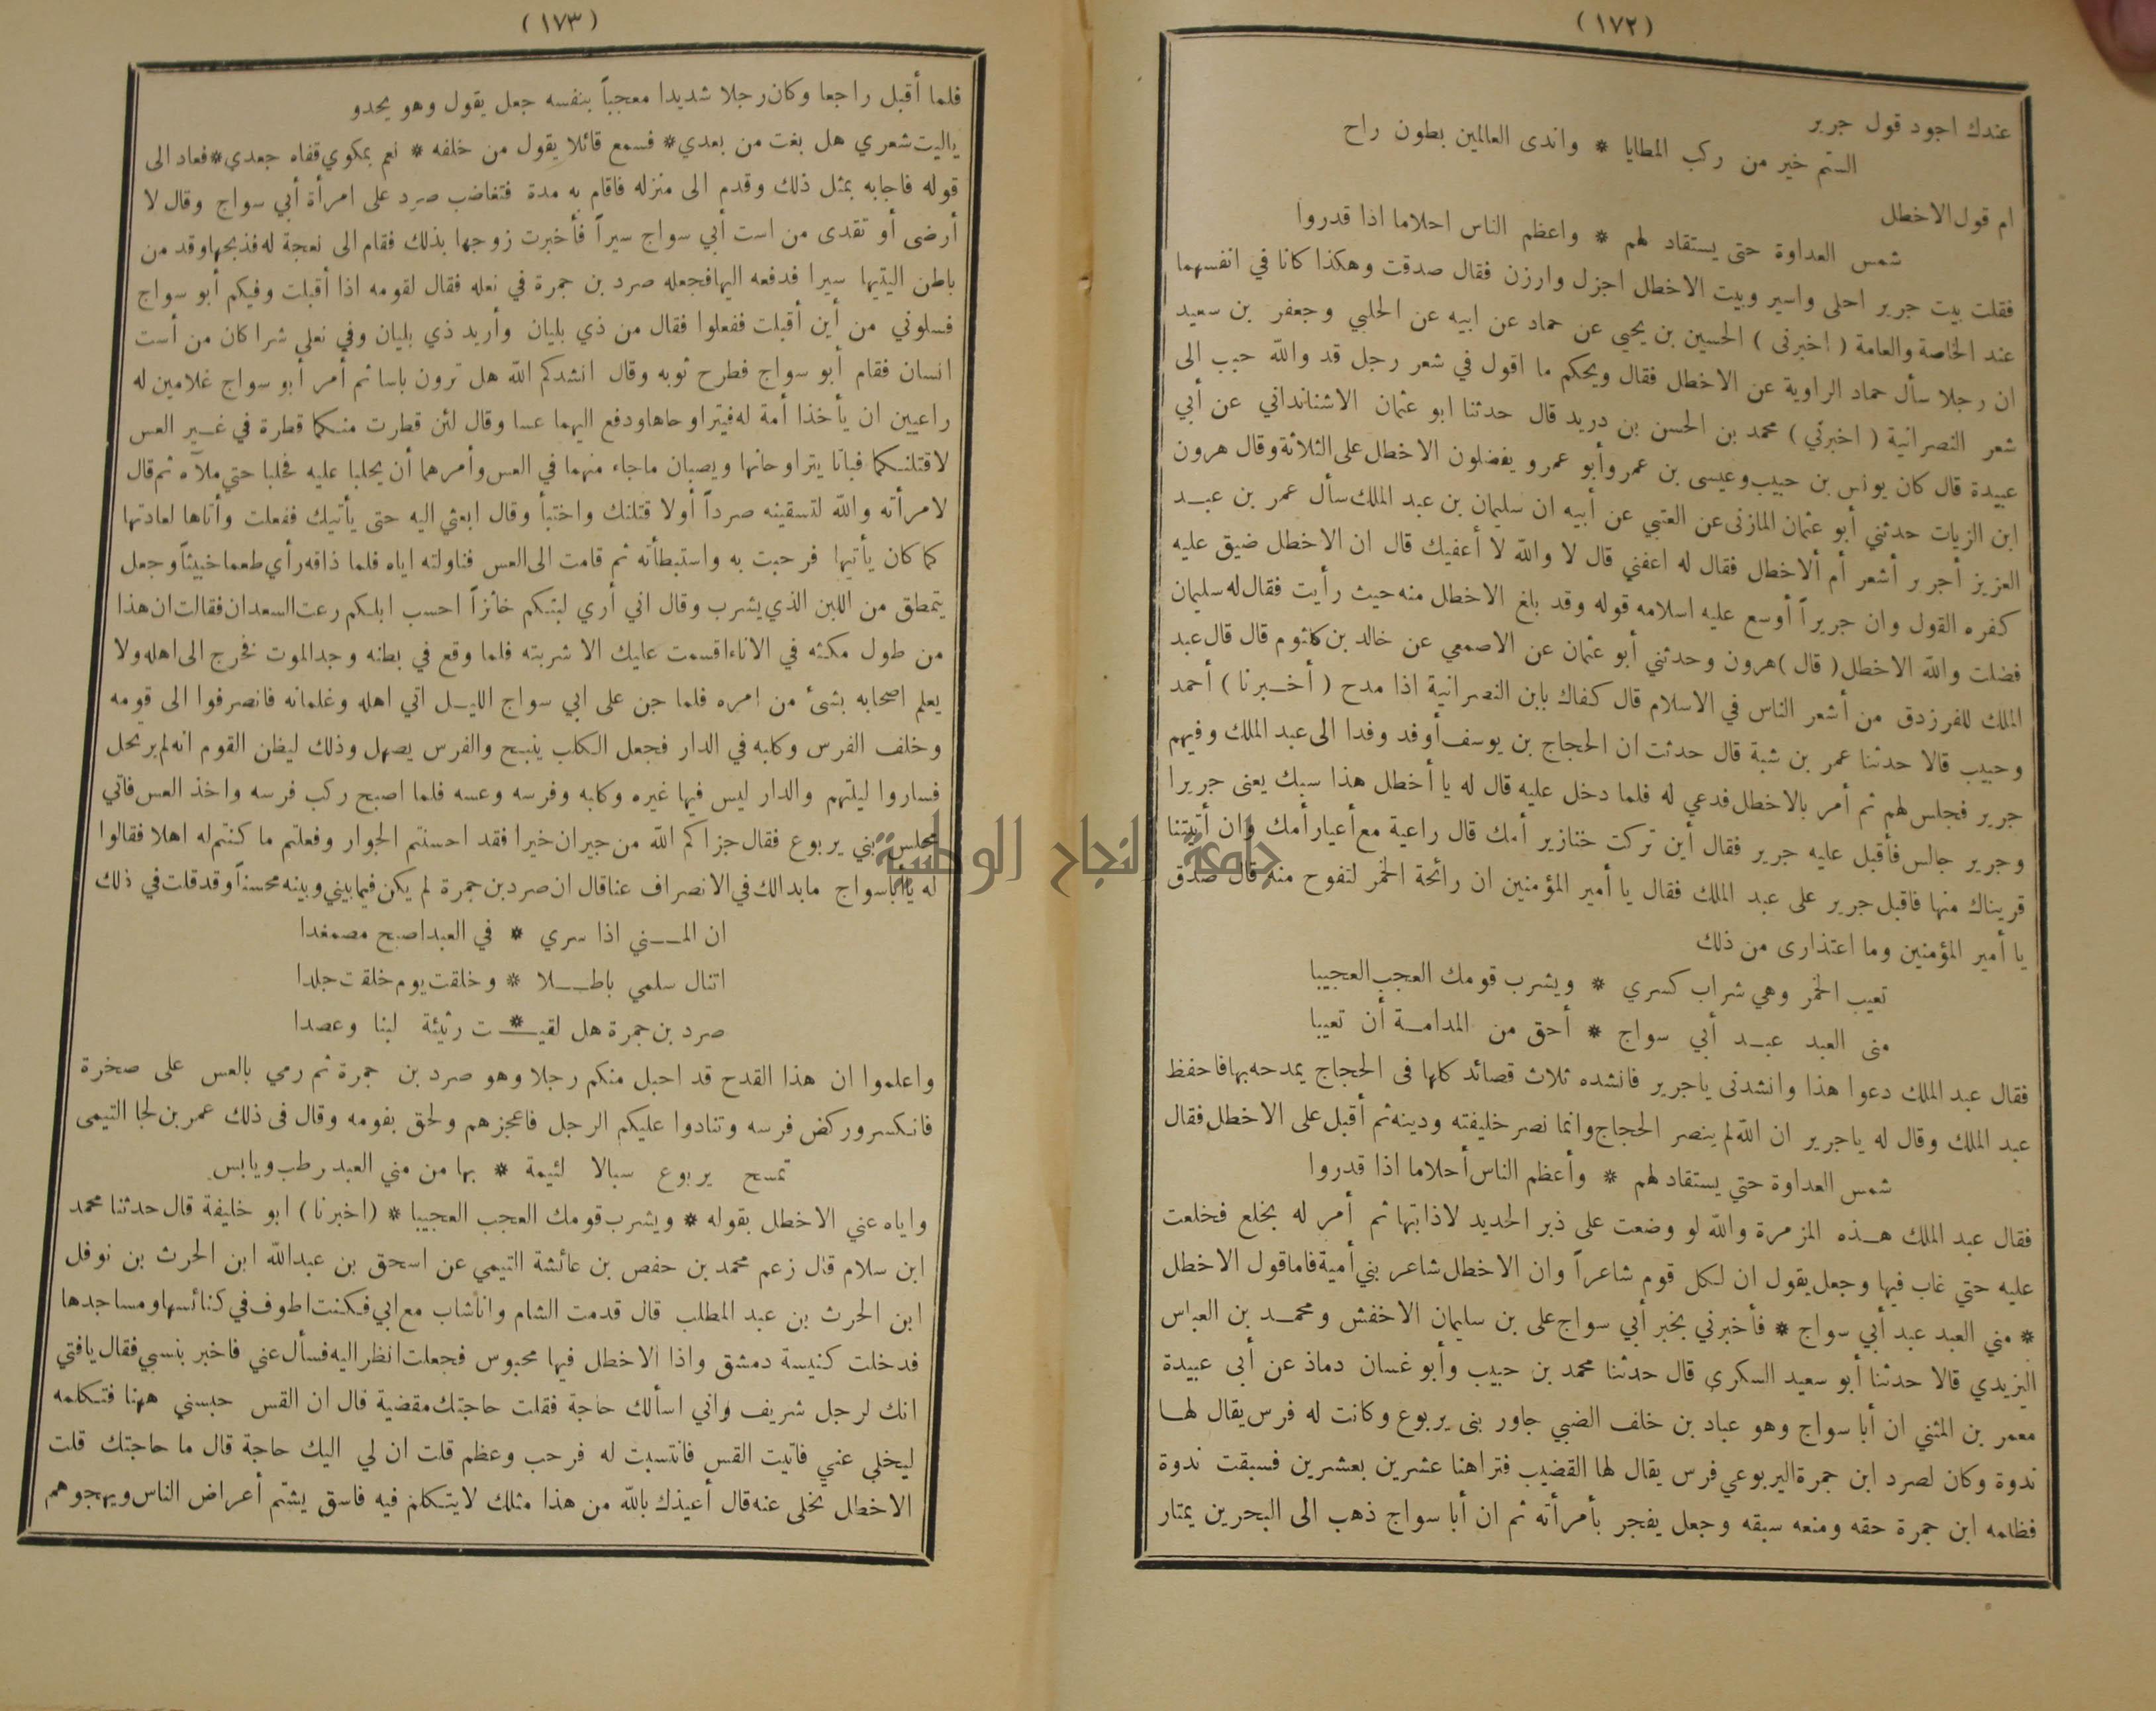 (١٧٢)
عندك اجود قول جرير
الستم خير من ركب المطايا * واندى العالمين بطون راح
ام قول الاخطل
شمس العداوة حتى يستقاد لهم * واعظم الناس احلاما اذا قدروا
فقلت بيت جرير احلى واسير وبيت الاخطل اجزل وارزن فقال صدقت وهكذا كانا في انفسهما
عند الخاصة والعامة ( اخبرنى ) الحسين بن يحيي عن حماد عن ابيه عن الحلبي وجعفر بن سعيد
ان رجلا سأل حماد الراوية عن الاخطل فقال ويحكم ما اقول في شعر رجل قد والله حبب الى
شعر النصرانية ( اخبرني ) محمد بن الحسن بن دريد قال حدثنا ابو عثمان الاشنانداني عن أبي
عبيدة قال كان يونس بن حبيب وعيسى بن عمر وأبو عمرو يفضلون الاخطل على الثلاثة وقال هرون
ابن الزيات حدثني أبو عثمان المازنى عن العتبي عن أبيه ان سليمان بن عبد الملك سأل عمر بن عبد
العزيز أجرير أشعر أم ألاخطل فقال له اعفني قال لا والله لا أعفيك قال ان الاخطل ضيق عليه
كفره القول وان جريراً أوسع عليه اسلامه قوله وقد بلغ الاخطل منه حيث رأيت فقال له سليمان
فضلت والله الاخطل ( قال ) هرون وحدثني أبو عثمان عن الاصمعي عن خالد بن كلثوم قال قال عبد
الملك للفرزدق من أشعر الناس في الاسلام قال كفاك بابن النصرانية اذا مدح ( أخبرنا ) أحمد
وحبيب قالا حدثنا عمر بن شبة قال حدثت ان الحجاج بن يوسف أوفد وفدا الى عبد الملك وفيهم
جرير فجلس لهم ثم أمر بالاخطل فدعي له فلما دخل عليه قال له يا أخطل هذا سبك يعنى جريرا
وجرير جالس فأقبل عليه جرير فقال أين تركت خنازير أمك قال راعية مع أعيار أمك وان أتيتنا
قريناك منها فاقبل جرير على عبد الملك فقال يا أمير المؤمنين ان رائحة الخمر لتفوح منه قال صدق
يا أمير المؤمنين وما اعتذارى من ذلك
تعيب الخمر وهي شراب كسري * ويشرب قومك العجب العجيبا
منى العبد عبد أبي سواج * أحق من المدامة أن تعيبا
فقال عبد الملك دعوا هذا وانشدنى ياجرير فانشده ثلاث قصائد كلها فى الحجاج يمدحه بها فاحفظ
عبد الملك وقال له ياجرير ان الله لم ينصر الحجاج وانما نصر خليفته ودينه ثم أقبل على الاخطل فقال
شمس العداوة حتي يستقاد لهم * وأعظم الناس أحلاما اذا قدروا
فقال عبد الملك هذه المزمرة والله لو وضعت على ذبر الحديد لاذابتها ثم أمر له بخلع فخلعت
عليه حتي غاب فيها وجعل يقول ان لكل قوم شاعراً وان الاخطل شاعر بني أمية فاما قول الاخطل
* مني العبد عبد أبي سواج * فأخبرني بخبر أبي سواج على بن سليمان الاخفش ومحمد بن العباس
اليزيدي قالا حدثنا أبو سعيد السكري قال حدثنا محمد بن حبيب وأبو غسان دماذ عن أبى عبيدة
معمر بن المثني ان أبا سواج وهو عباد بن خلف الضبي جاور بنى يربوع وكانت له فرس يقال لها
ندوة وكان لصرد ابن جمرة اليربوعي فرس يقال لها القضيب فتراهنا عشرين بعشرين فسبقت ندوة
فظلمه ابن جمرة حقه ومنعه سبقه وجعل يفجر بأمرأته ثم ان أبا سواج ذهب الى البحرين يمتار
(١٧٣)
فلما أقبل راجعا وكان رجلا شديدا معجباً بنفسه جعل يقول وهو يحدو
ياليت شعري هل بغت من بعدي * فسمع قائلا يقول من خلفه * نعم بمكوي قفاه جعدي * فعاد الى
قوله فاجابه بمثل ذلك وقدم الى منزله فاقام به مدة فتغاضب صرد على امرأة أبي سواج وقال لا
أرضى أو تقدى من است أبي سواج سيراً فأخبرت زوجها بذلك فقام الى نعجة له فذبحها وقد من
باطن اليتيها سيرا فدفعه اليها فجعله صرد بن جمرة في نعله فقال لقومه اذا أقبلت وفيكم أبو سواج
فسلوني من أين أقبلت ففعلوا فقال من ذي بليان وأريد ذي بليان وفي نعلى شراكان من أست
انسان فقام أبو سواج فطرح ثوبه وقال انشدكم الله هل ترون باسا ثم أمر أبو سواج غلامين له
راعيين ان يأخذا أمة له فيتراوحاها ودفع اليهما عسا وقال لئن قطرت منكما قطرة في غير العس
لاقتلنكما فباتا يتراوحانها ويصبان ماجاء منهما في العس وأمرهما أن يحلبا عليه فحلبا حتي ملآه ثم قال
لامرأته والله لتسقينه صرداً أولا قتلنك واختبأ وقال ابعثي اليه حتى يأتيك ففعلت وأتاها لعادتها
كما كان يأتيها فرحبت به واستبطأته ثم قامت الى العس فناولته اياه فلما ذاقه رأي طعما خبيثاً وجعل
يتمطق من اللبن الذي يشرب وقال اني أري لبنكم خاثراً احسب ابلكم رعت السعدان فقالت ان هذا
من طول مكثه في الاناء اقسمت عليك الا شربته فلما وقع في بطنه وجد الموت فخرج الى اهله ولا
يعلم اصحابه بشئ من امره فلما جن على ابي سواج الليل اتي اهله وغلمانه فانصرفوا الى قومه
وخلف الفرس وكلبه في الدار فجعل الكلب ينبح والفرس يصهل وذلك ليظن القوم انه لم يرتحل
فساروا ليلتهم والدار ليس فيها غيره وكلبه وفرسه وعسه فلما اصبح ركب فرسه واخذ العس فاتي
مجلس بني يربوع فقال جزاكم الله من جيران خيرا فقد احسنتم الجوار وفعلتم ما كنتم له اهلا فقالوا
له يا أبا سواج مابدالك في الانصراف عنا قال ان صرد بن جمرة لم يكن فيما بيني وبينه محسناً وقد قلت في ذلك
ان المني اذا سري * في العبد اصبح مصمغدا
اتنال سلمي باطلا * وخلقت يوم خلقت جلدا
صرد بن جمرة هل لقيت * رثيئة لبنا وعصدا
واعلموا ان هذا القدح قد احبل منكم رجلا وهو صرد بن جمرة ثم رمي بالعس على صخرة
فانكسر وركض فرسه وتنادوا عليكم الرجل فاعجزهم ولحق بقومه وقال فى ذلك عمر بن لجا التيمى
تمسح يربوع سبالا لئيمة * بها من مني العبد رطب ويابس
واياه عني الاخطل بقوله * ويشرب قومك العجب العجيبا * (اخبرنا) ابو خليفة قال حدثنا محمد
ابن سلام قال زعم محمد بن حفص بن عائشة التيمي عن اسحق بن عبدالله ابن الحرث بن نوفل
ابن الحرث بن عبد المطلب قال قدمت الشام وانا شاب مع ابي فكنت اطوف في كنائسها ومساجدها
فدخلت كنيسة دمشق واذا الاخطل فيها محبوس فجعلت انظر اليه فسأل عني فاخبر بنسبي فقال يافتي
انك لرجل شريف واني اسألك حاجة فقلت حاجتك مقضية قال ان القس حبسني ههنا فتكلمه
ليخلي عني فاتيت القس فانتسبت له فرحب وعظم قلت ان لي اليك حاجة قال ما حاجتك قلت
الاخطل تخلى عنه قال أعيذك بالله من هذا مثلك لايتكلم فيه فاسق يشتم أعراض الناس ويهجوهم
جامعة النجاح الوطنية